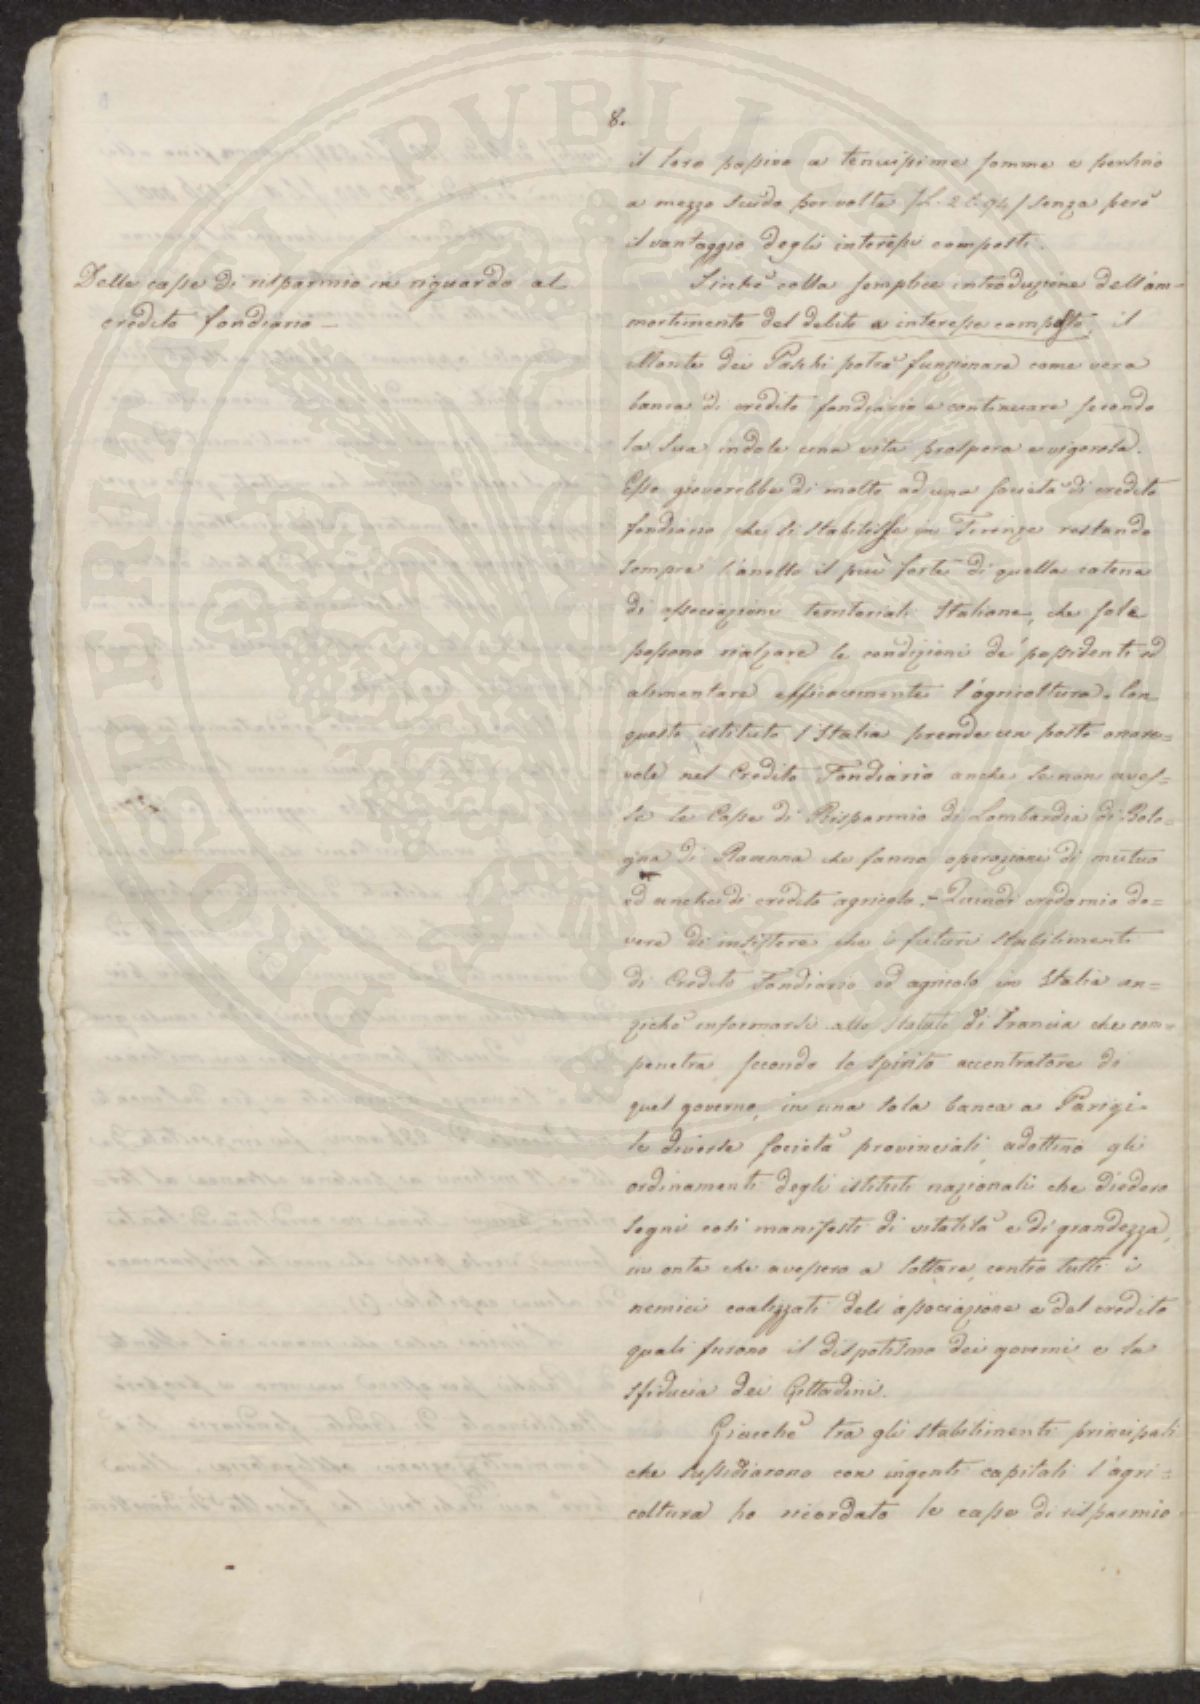 8.
il loro passivo a tenuissime somme e perfino
a mezzo scudo per volta /L. 2 C. 94/ senza però
il vantaggio degli interessi composti.
Delle casse di risparmio in riguardo al
credito fondiario —
Sicchè colla semplice introduzione dell'am-
mortimento del debito a interesse composto, il
Monte dei Paschi potrà funzionare come vera
banca di credito fondiario e continuare secondo
la sua indole una vita prospera e vigorosa.
Esso gioverebbe di molto ad una società di credito
fondiario che si stabilisse in Firenze restando
sempre l'anello il più forte di quella catena
di associazioni territoriali Italiane, che sole
possono rialzare le condizioni de' possidenti ed
alimentare efficacemente l'agricoltura. Con
questo istituto l'Italia prende un posto onore=
vole nel Credito Fondiario anche se non aves=
se le Casse di Risparmio di Lombardia di Bolo=
gna di Ravenna che fanno operazioni di mutuo
ed anche di credito agricolo. — Quindi credo mio do=
vere di insistere che i futuri stabilimenti
di Credito Fondiario ed agricolo in Italia an=
zichè informarsi allo statuto di Francia che com=
penetra secondo lo spirito accentratore di
quel governo, in una sola banca a Parigi
le diverse società provinciali, adottino gli
ordinamenti degli istituti nazionali che diedero
segni così manifesti di vitalità e di grandezza,
in onta che avessero a lottare contro tutti i
nemici coalizzati dell'associazione e del credito
quali furono il dispotismo dei governi e la
sfiducia dei Cittadini.
Giacchè tra gli stabilimenti principali
che sussidiarono con ingenti capitali l'agri=
coltura ho ricordato le casse di risparmio